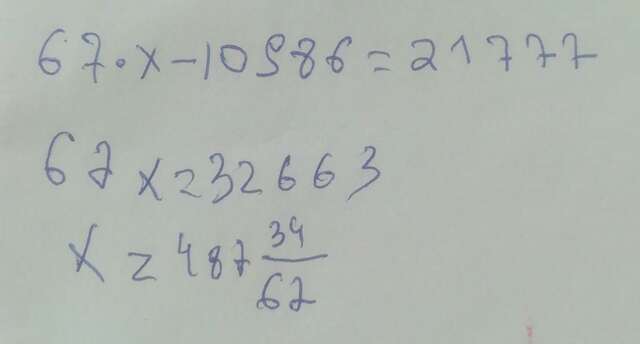 67·x-10886=21777
67x=32663
x=487 34/67